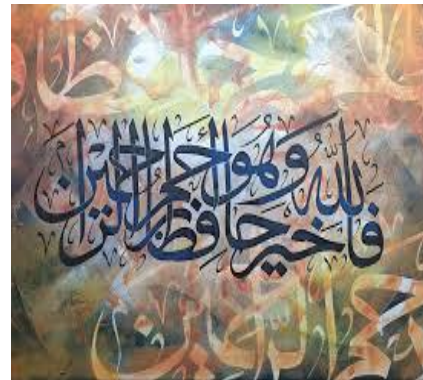 فَاللّٰه خَير حَافِظًا وَهُوَ أَرحَم الرَّاحِمِين